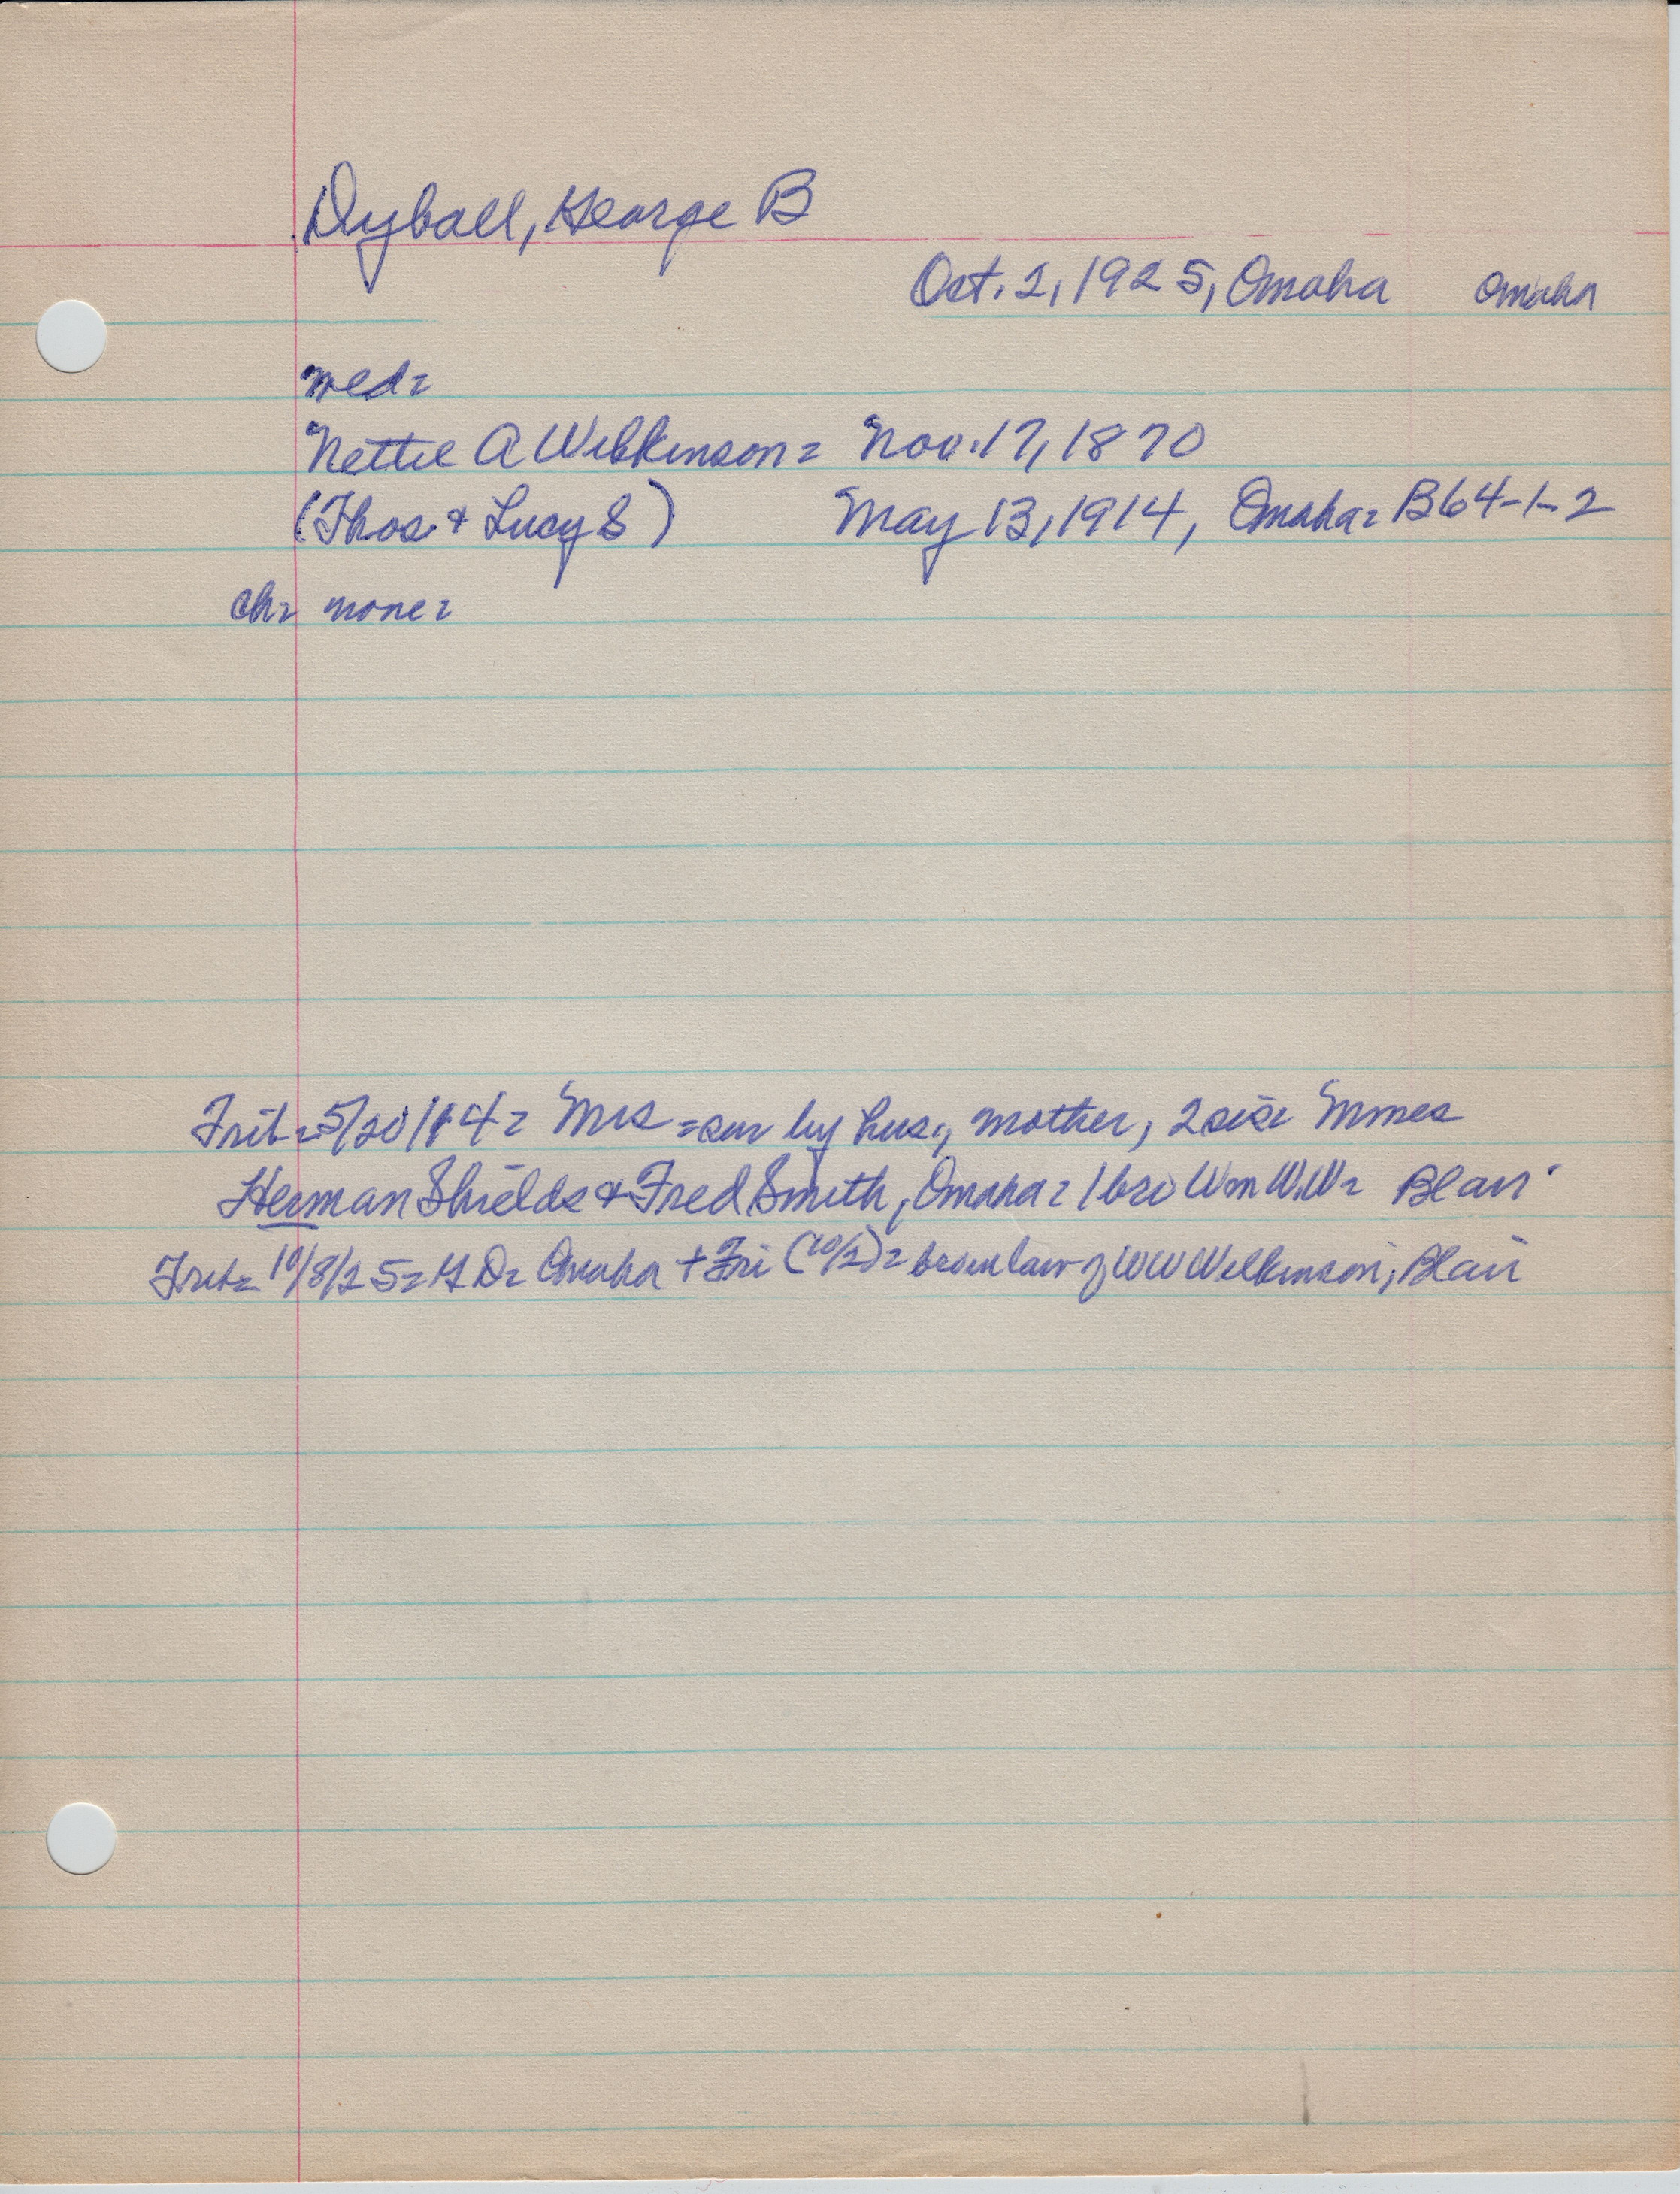 Dyball, George B
Oct. 2, 1925, Omaha Omaha
wed=
Nettie A Wilkinson= Nov. 17, 1870
(Thos. & Lucy S) May 13, 1914, Omaha= B64-1-2
ch= none=
Trib=5/20/14= Mrs =sur by hus., mother, 2 sis= Mmes
Herman Shields & Fred Smith, Omaha= 1 bro Wm W.W= Blair
Trib= 10/8/25= G D= Omaha + Fri (10/2)= bro in law of W W Wilkinson, Blair